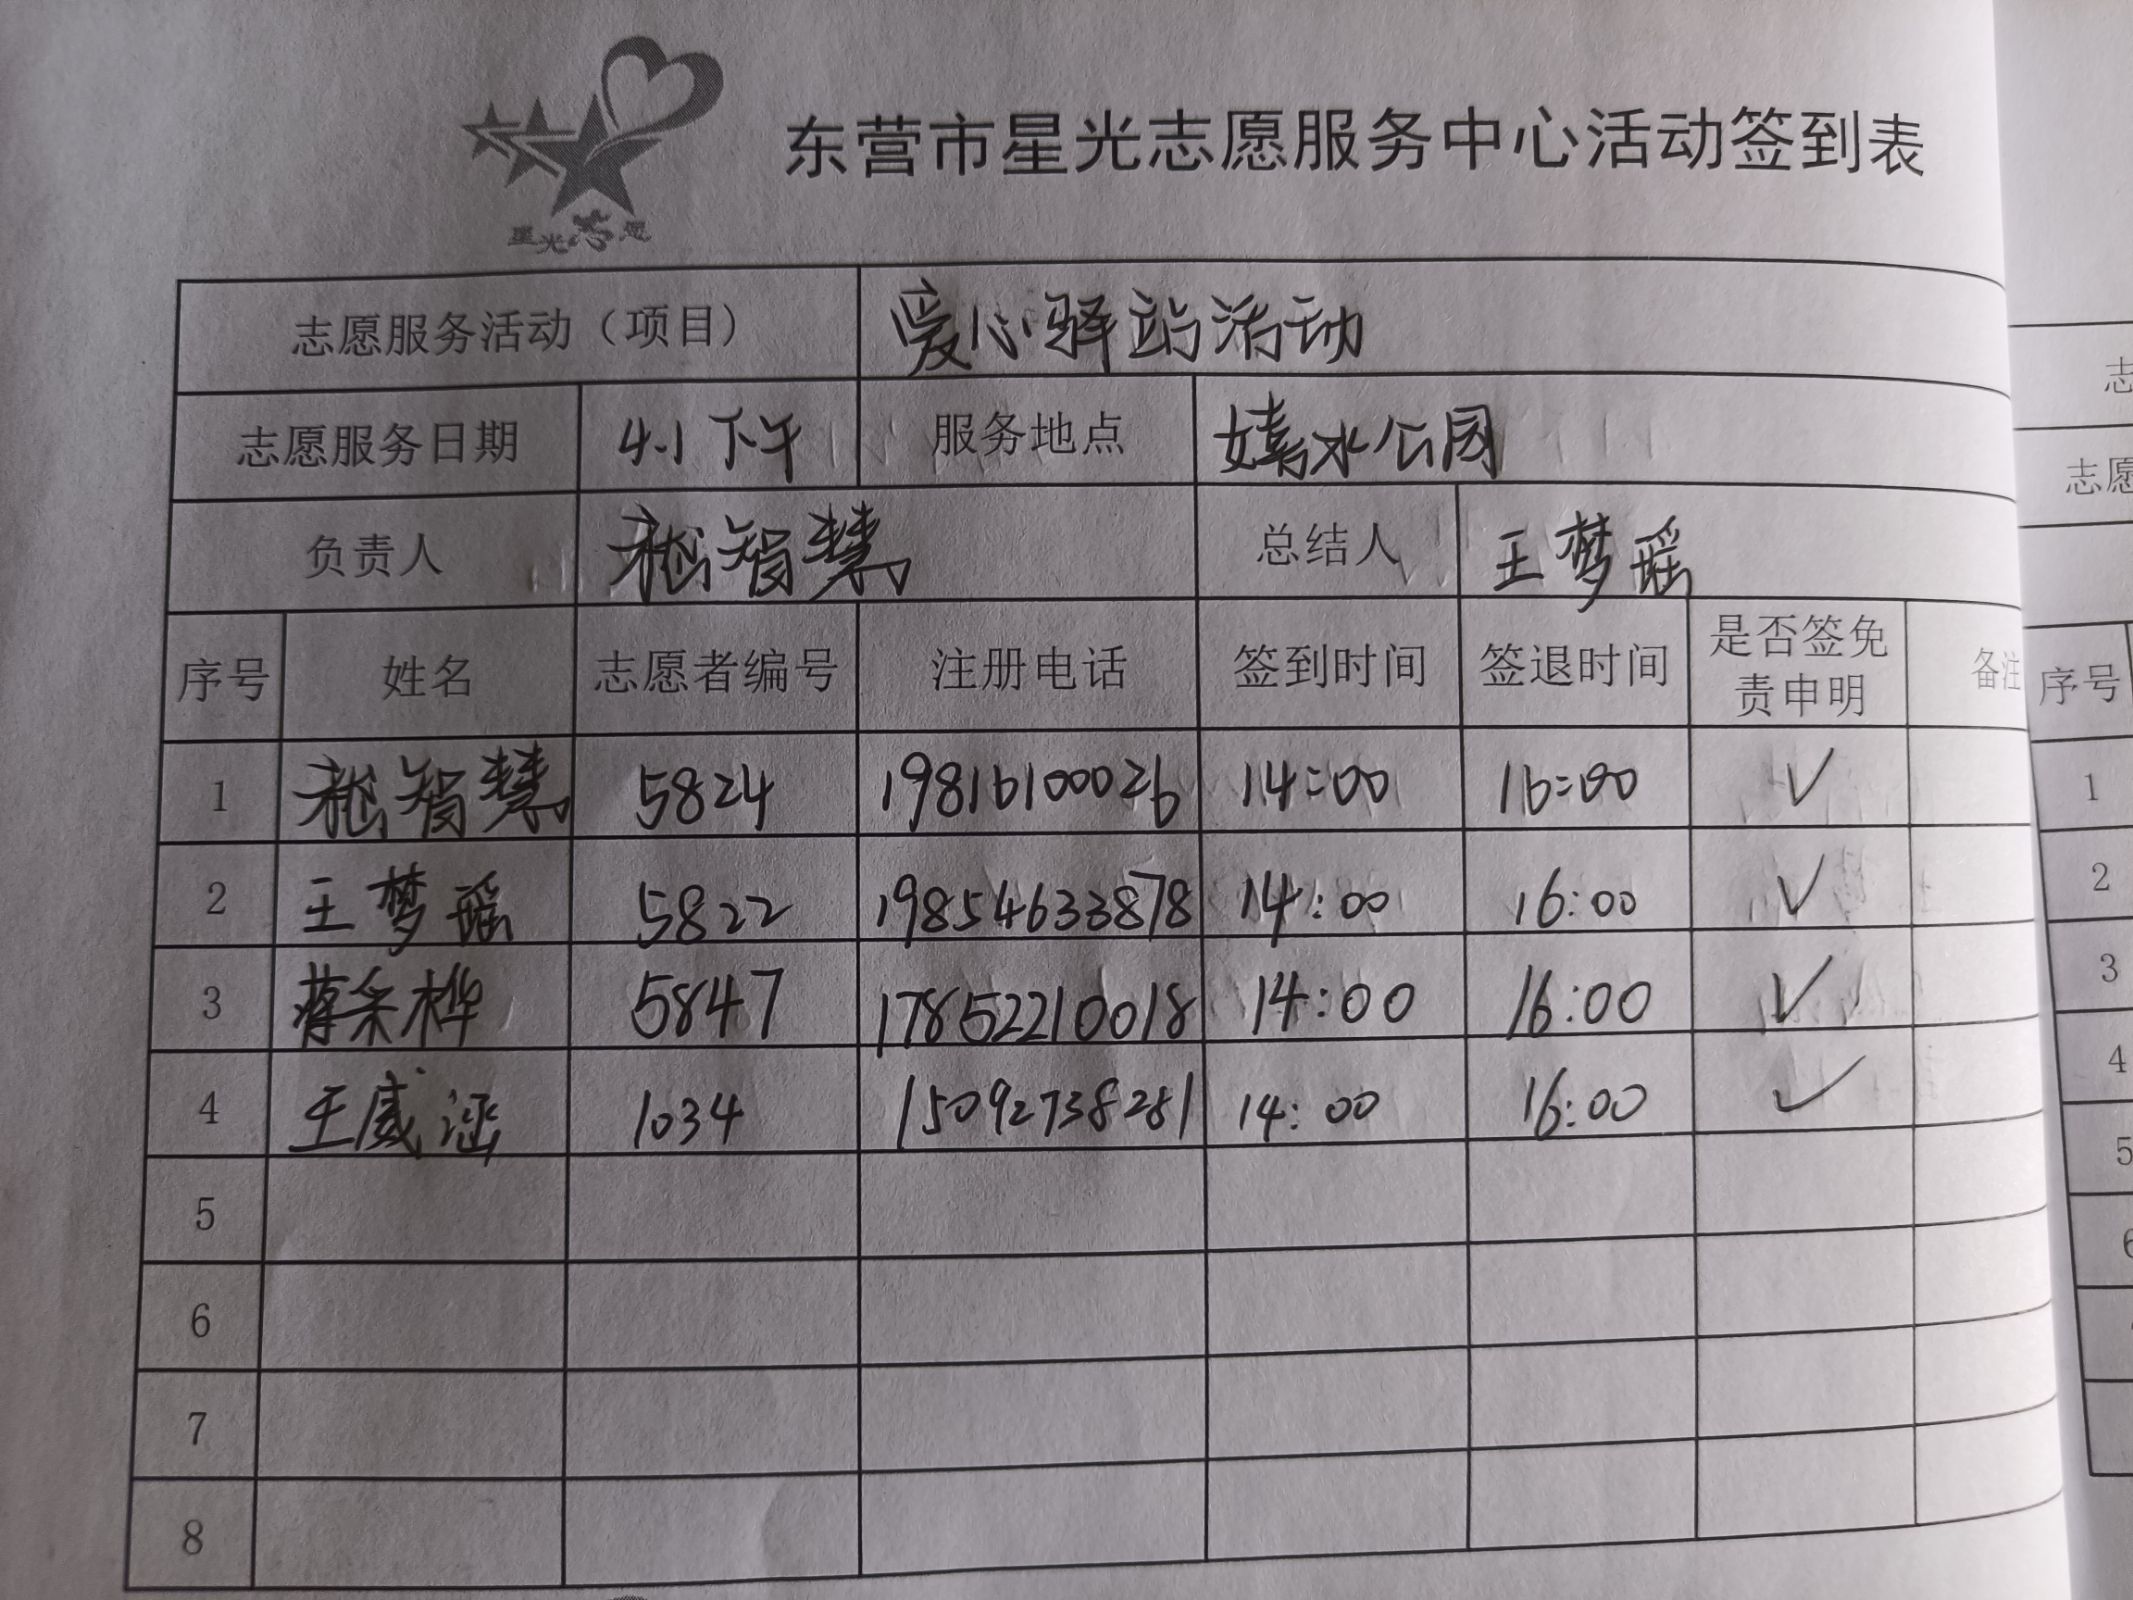 星光志愿
东营市星光志愿服务中心活动签到表
志愿服务活动（项目） 爱心驿站活动
志愿服务日期 4.1下午 服务地点 嬉水公园
负责人 智慧 总结人 王梦瑶
序号 姓名 志愿者编号 注册电话 签到时间 签退时间 是否签免责申明 备注
1 智慧 5824 19816100026 14:00 16:00 √
2 王梦瑶 5822 19854633878 14:00 16:00 √
3 蒋采桦 5847 17852210018 14:00 16:00 √
4 王威涵 1034 15092738281 14:00 16:00 √
5
6
7
8
志
志愿
序号
1
2
3
4
5
6